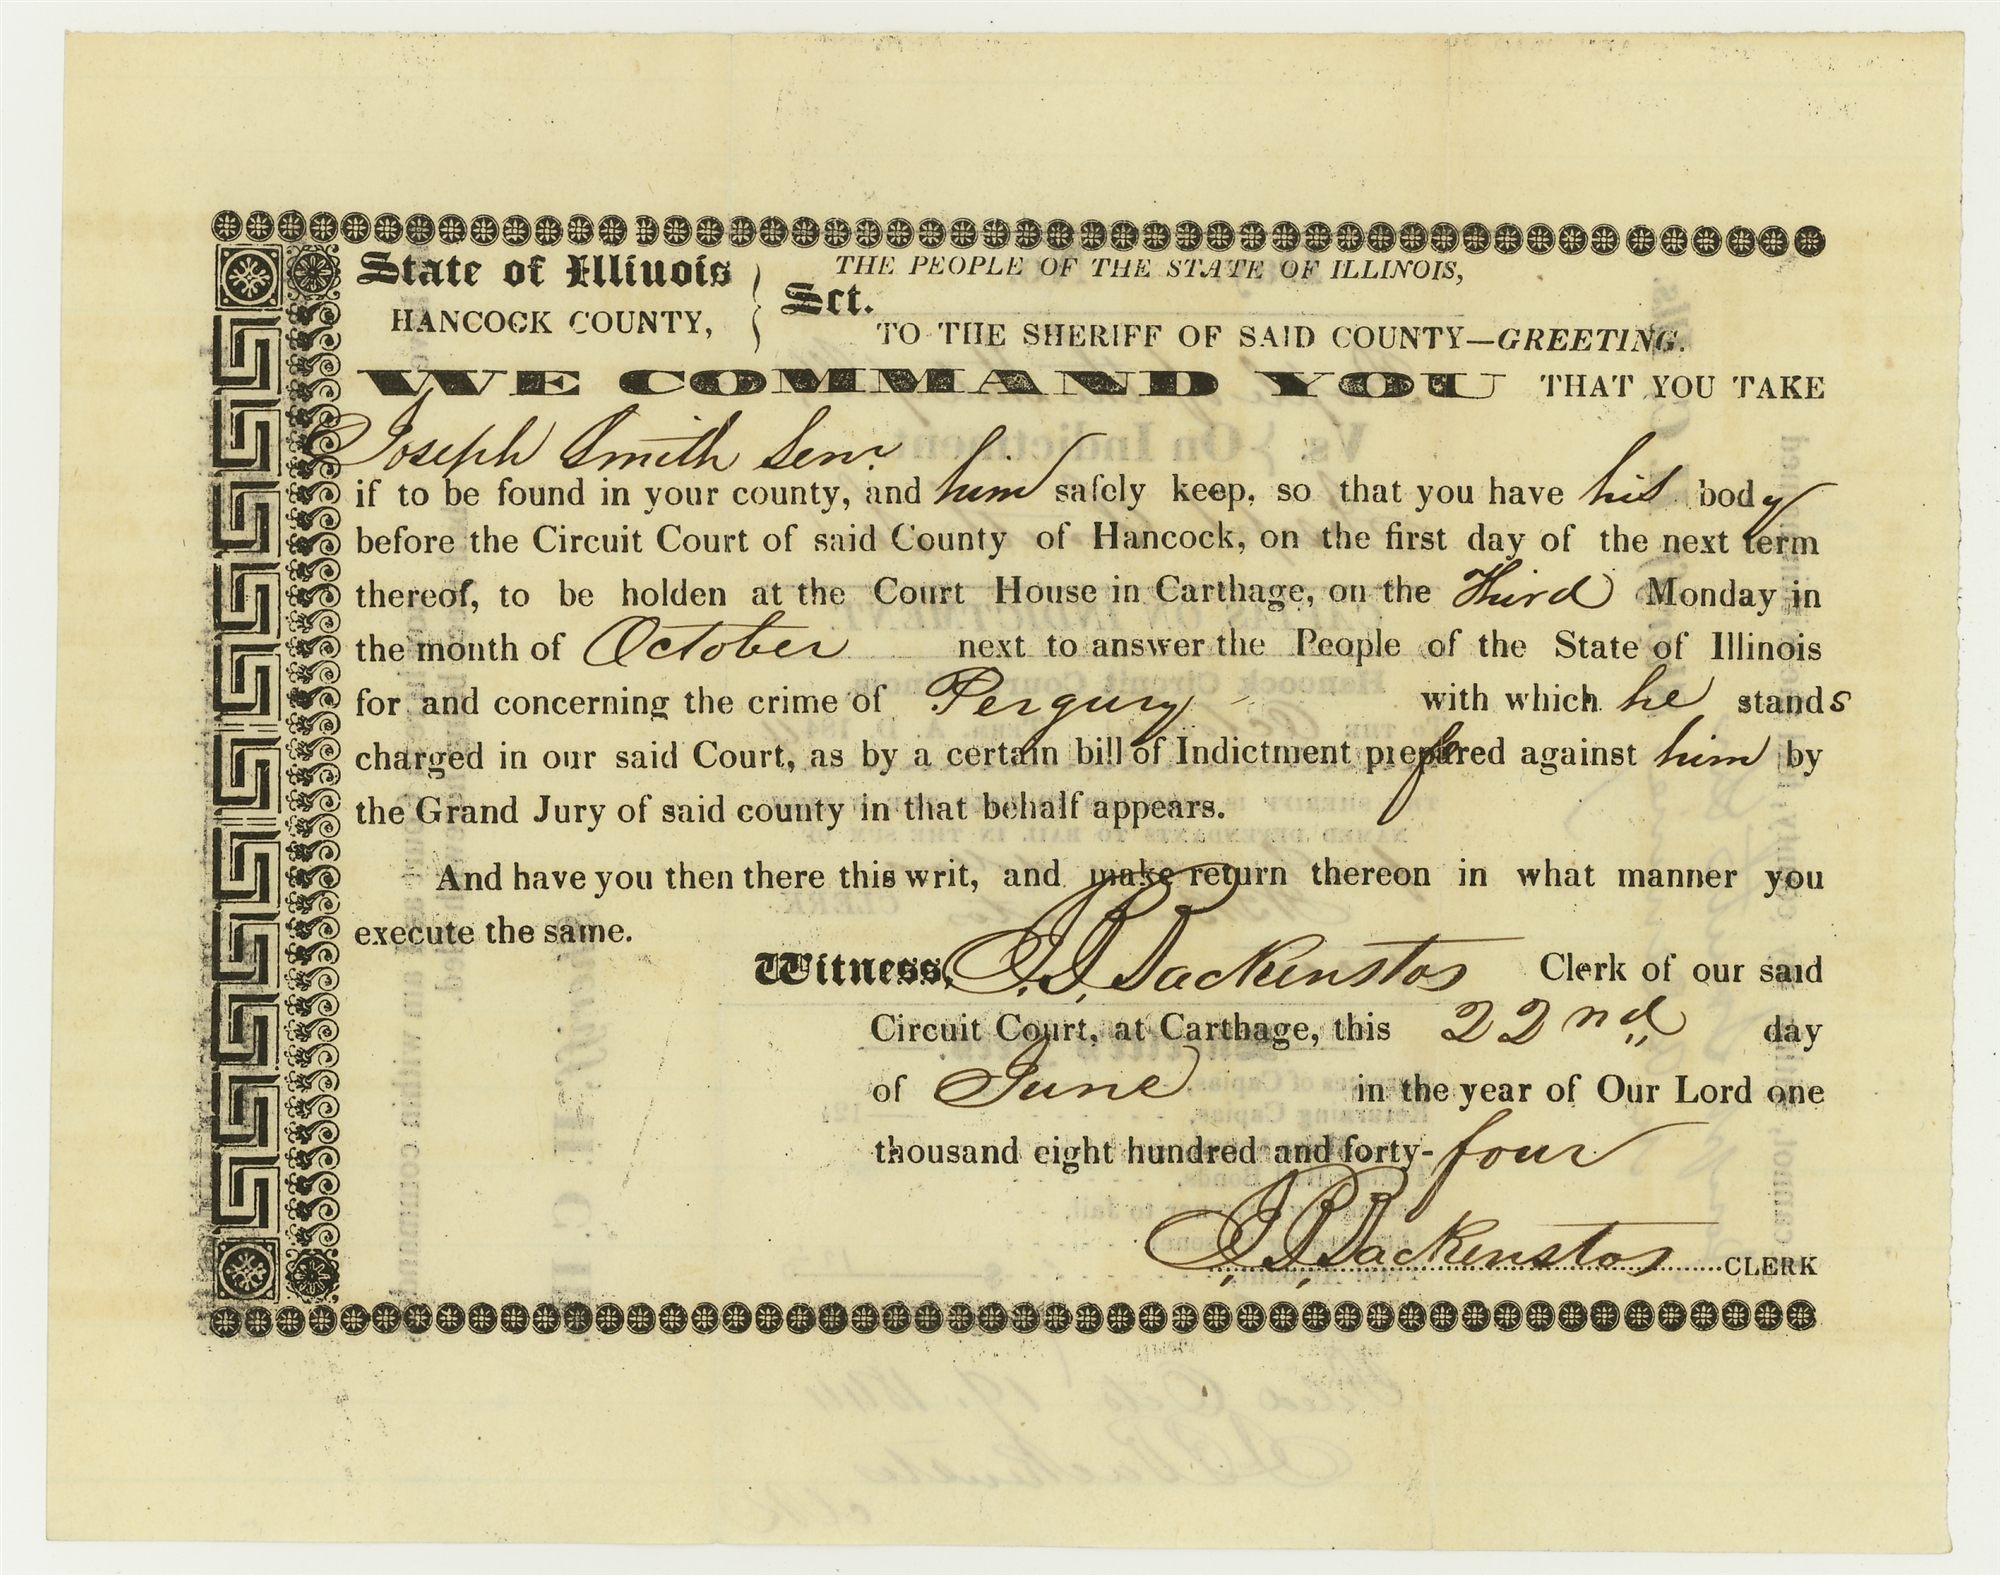 State of Illinois
HANCOCK COUNTY,
Sct.
THE PEOPLE OF THE STATE OF ILLINOIS,
TO THE SHERIFF OF SAID COUNTY—GREETING.
WE COMMAND YOU THAT YOU TAKE
Joseph Smith Senr.
if to be found in your county, and him safely keep, so that you have his body
before the Circuit Court of said County of Hancock, on the first day of the next term
thereof, to be holden at the Court House in Carthage, on the Third Monday in
the month of October next to answer the People of the State of Illinois
for and concerning the crime of Pergury with which he stands
charged in our said Court, as by a certain bill of Indictment prefered against him by
the Grand Jury of said county in that behalf appears.
And have you then there this writ, and make return thereon in what manner you
execute the same.
Witness, J. B. Backenstos Clerk of our said
Circuit Court, at Carthage, this 22nd day
of June in the year of Our Lord one
thousand eight hundred and forty-four
J. B. Backenstos CLERK